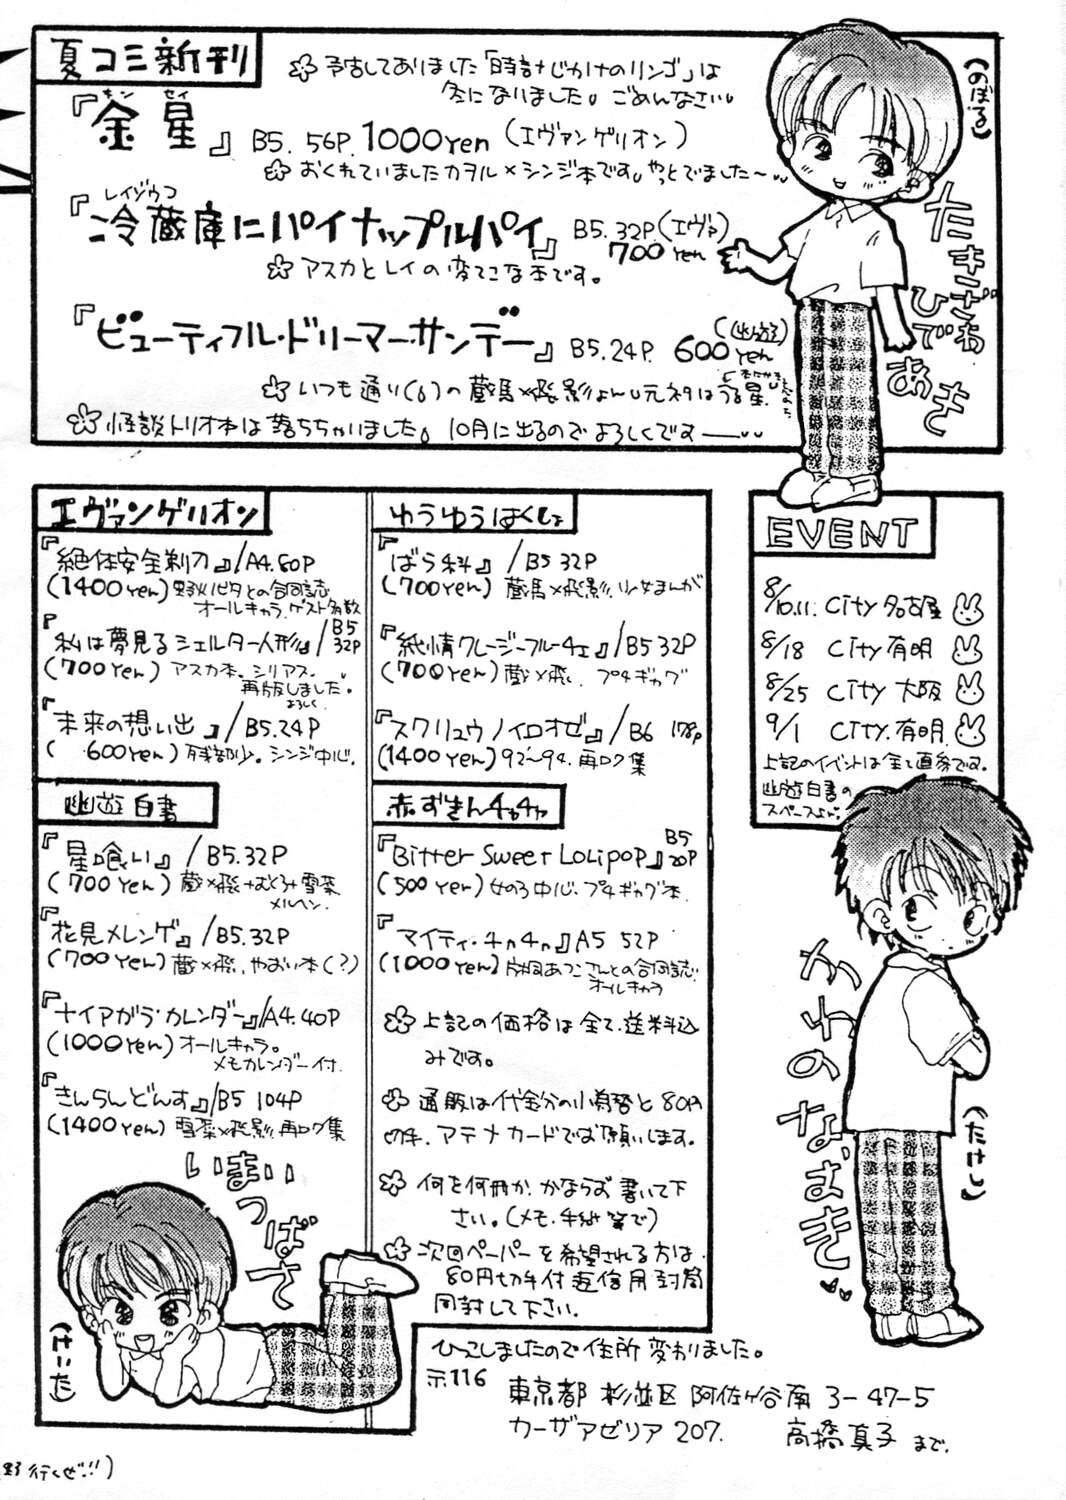 夏コミ新刊
✿ 予告してありました「時計じかけのリンゴ」は
冬になりました。ごめんなさい。
キン セイ
『金星』 B5. 56P. 1000yen (エヴァンゲリオン)
✿ おくれていましたカヲル×シンジ本です。やっとでました〜
レイゾウコ
『冷蔵庫にパイナップルパイ』 B5. 32P (エヴァ)
700yen
✿ アスカとレイの変てこな本です。
『ビューティフル・ドリーマー・サンデー』 B5. 24P. 600yen
(幽遊)
✿ いつも通り(?)の蔵馬×飛影
元ネタはうる星
✿ 怪談トリオ本は落ちちゃいました。10月に出るのでよろしくです——
(のぼる)
たきざわ
ひであき
エヴァンゲリオン
『絶体安全剃刀』/A4. 60P
(1400yen) との合同誌
オールキャラ. ゲスト多数
『私は夢見るシェルター人形』/B5
32P
(700yen) アスカ本. シリアス.
再版しました。
よろしく
『未来の想い出』/B5. 24P
(600yen) 残部少。シンジ中心.
幽遊白書
『星喰い』/B5. 32P
(700yen) 蔵×飛+ 雪菜
メルヘン.
『花見メレンゲ』/B5. 32P
(700yen) 蔵×飛. やおい本(?)
『ナイアガラ・カレンダー』/A4. 40P
(1000yen) オールキャラ。
メモカレンダー付.
『きんらんどんす』/B5 104P
(1400yen) 雪菜×飛影. 再ログ集
いまい
つばさ
(けいた)
ゆうゆうはくしょ
『ばら科』/B5 32P
(700yen) 蔵馬×飛影. 少女まんが
『純情クレージーフルーチェ』/B5 32P
(700yen) 蔵×飛. プチギャグ
『スクリュウノイロオゼ』/B6 178P
(1400yen) 92〜94. 再ログ集
赤ずきんチャチャ
『Bitter Sweet Lolipop』B5
20P
(500yen) 女の子中心. プチギャグ本.
『マイティ・チャチャ』A5 52P
(1000yen) あつこさんとの合同誌.
オールキャラ
✿ 上記の価格は全て、送料込
みです。
✿ 通販は代金分の小為替と80円
切手、アテメカードでお願いします。
✿ 何を何冊か、かならず書いて下
さい。(メモ. 手紙等で)
✿ 次回ペーパーを希望される方は.
80円切手付返信用封筒
同封して下さい。
EVENT
8/10.11. City 名古屋
8/18 City 有明
8/25 City 大阪
9/1 City. 有明.
上記のイベントは全て直参です。
幽遊白書の
スペースよん
かわのなおき
(たけし)
ひっこしましたので住所変わりました。
〒116 東京都 杉並区 阿佐ヶ谷南 3-47-5
カーザアゼリア 207. 高橋真子 まで.
行くぜ!!)